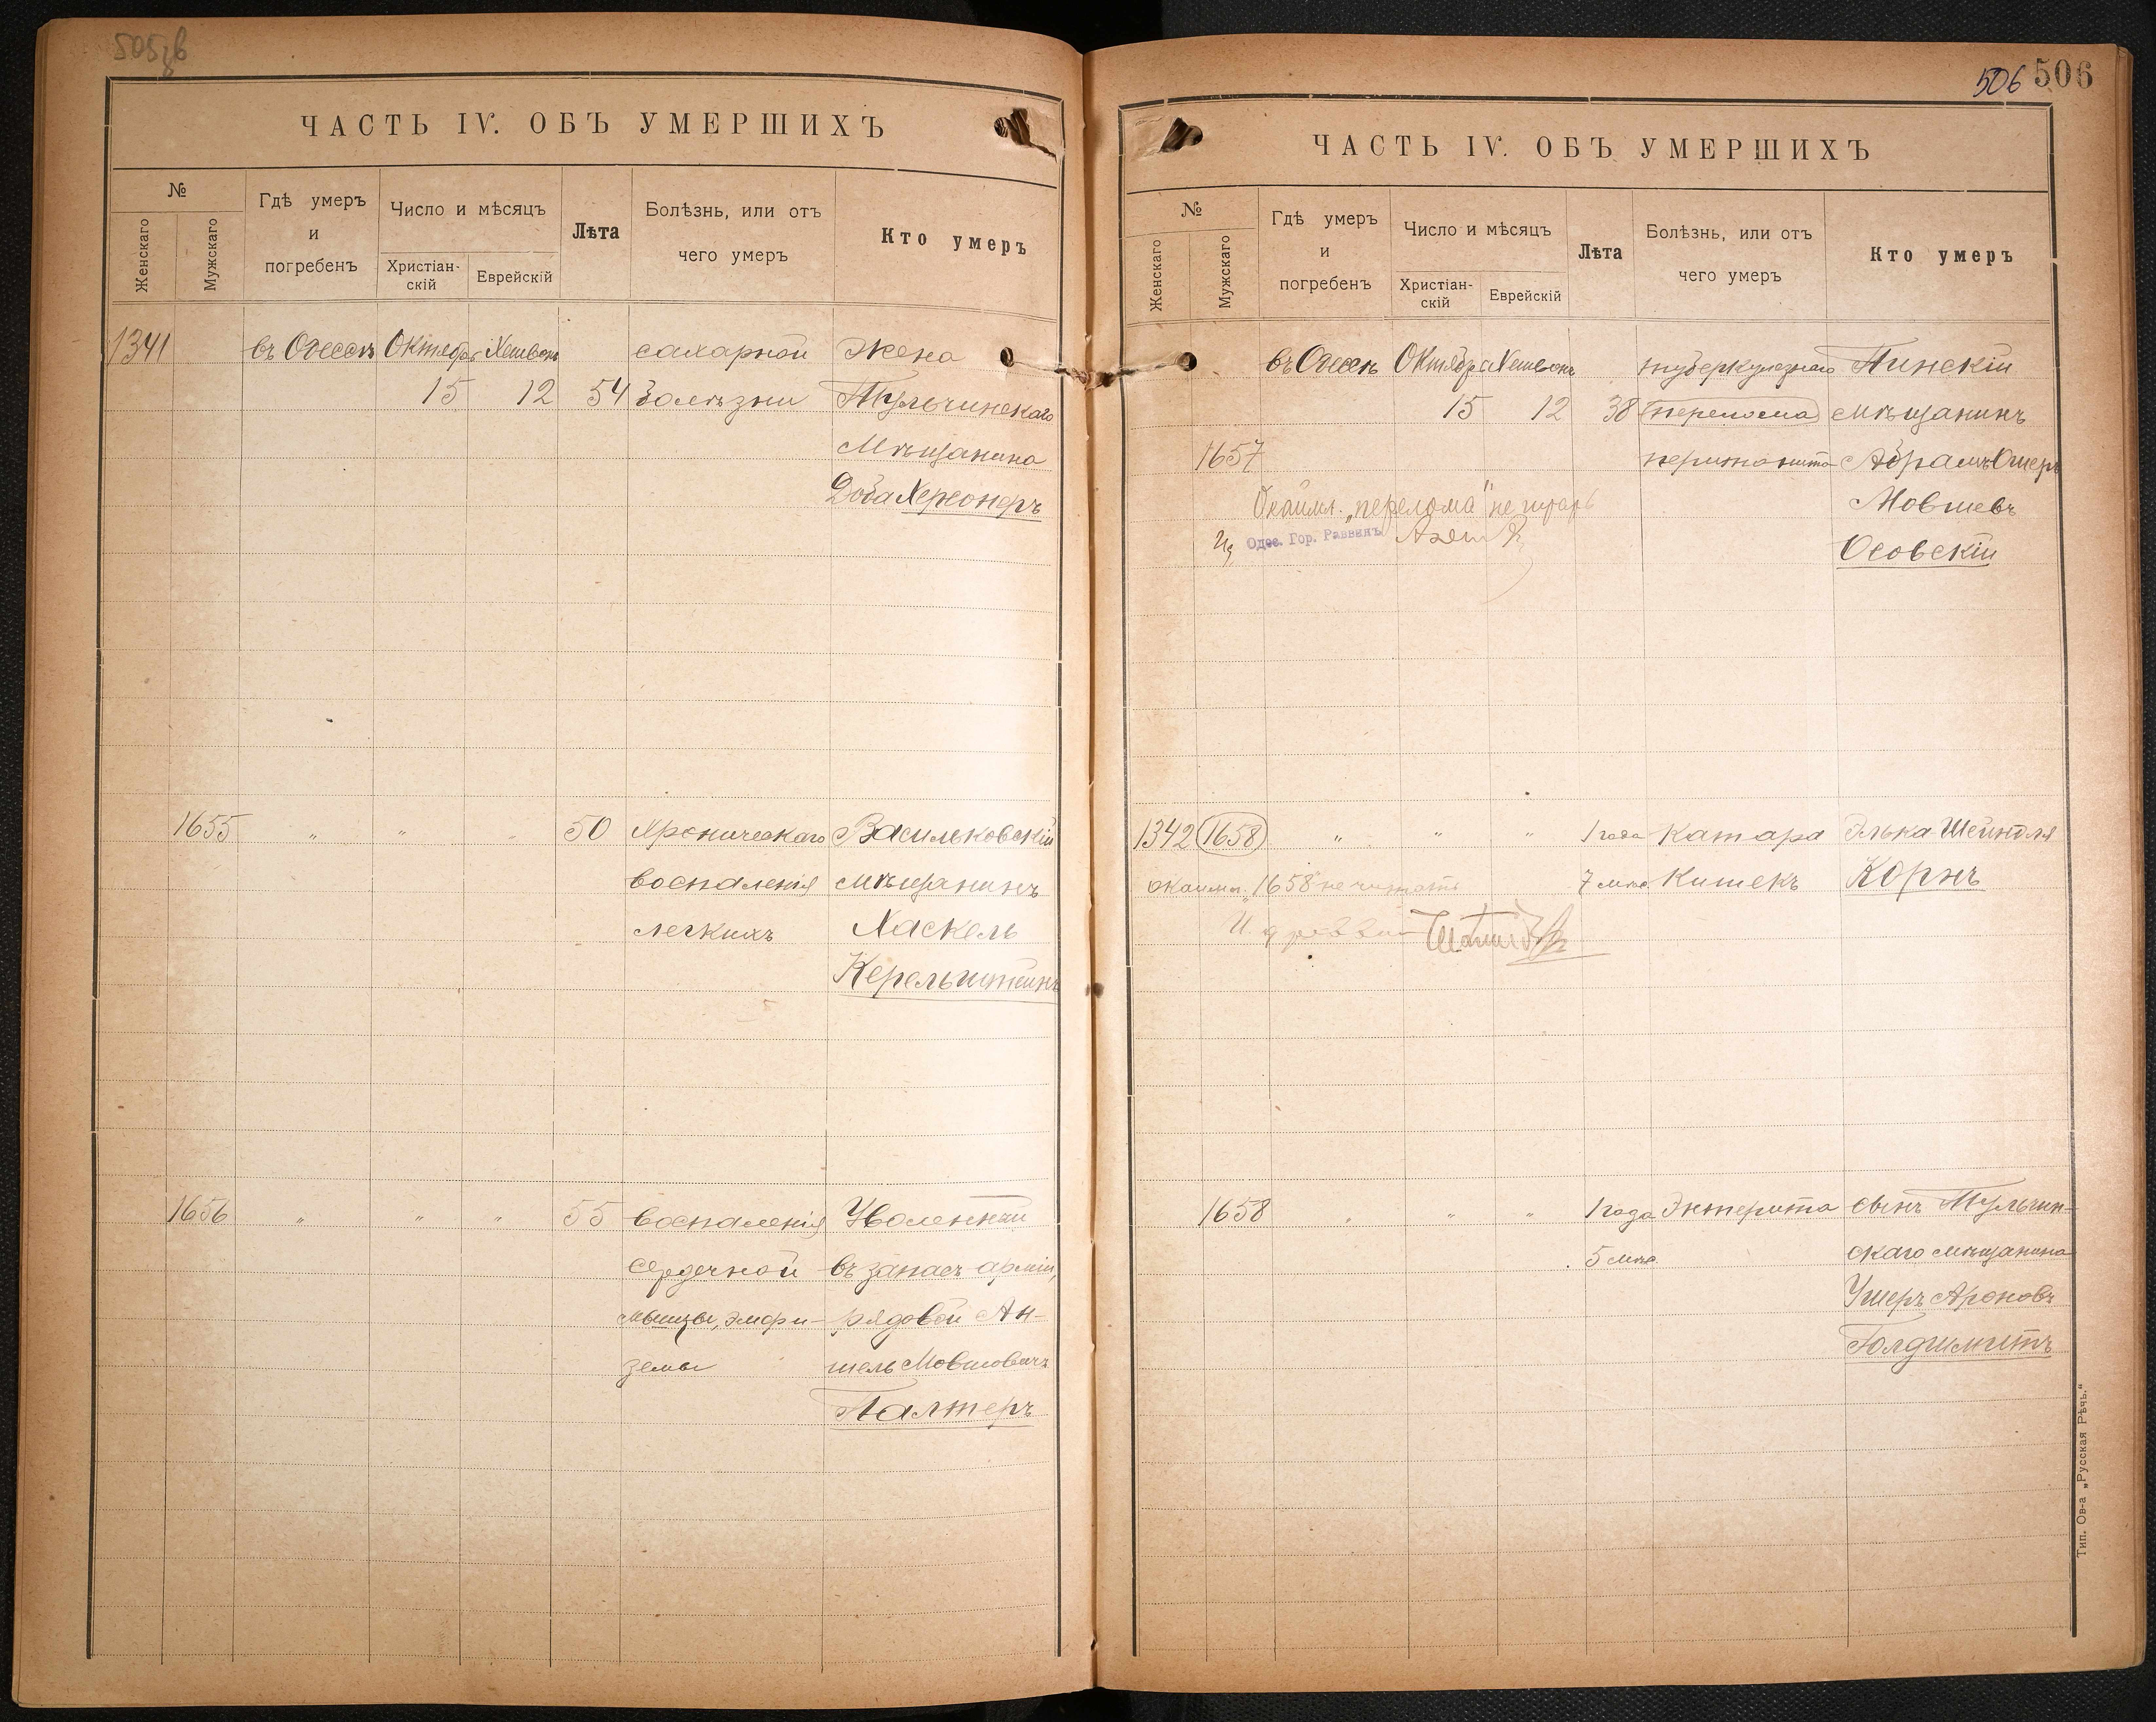 505 об
ЧАСТЬ IV. ОБЪ УМЕРШИХЪ
№
Женскаго
Мужскаго
Гдѣ умеръ
и
погребенъ
Число и мѣсяцъ
Христіан-
скій
Еврейскій
Лѣта
Болѣзнь, или отъ
чего умеръ
Кто умеръ
1341 въ Одессѣ Октября Хешвонъ сахарной Жена
15 12 54 болѣзни Тульчинскаго
Мѣщанина
Доба Херсонеръ
1655 " " " 50 Хроническаго Васильковскій
воспаленія мѣщанинъ
легкихъ Хаскель
Керельштейнъ
1656 " " " 55 воспаленія Уволенный
сердечной въ запасъ арміи,
мышцы, эмфи- рядовой Ан-
земы шель Мовшовичъ
Палтеръ
506 506
ЧАСТЬ IV. ОБЪ УМЕРШИХЪ
№
Женскаго
Мужскаго
Гдѣ умеръ
и
погребенъ
Число и мѣсяцъ
Христіан-
скій
Еврейскій
Лѣта
Болѣзнь, или отъ
чего умеръ
Кто умеръ
въ Одессѣ Октября Хешвонъ туберкулезнаго Пинскій
15 12 38 перелома мѣщанинъ
1657 перитонита Абрамъ Ошеръ
Окаймл. „перелома" не Мовшевъ
Одес. Гор. Раввинъ
Осовскій
1342 1658 " " " 1 года Катара Элька Шейндля
окаймл. „1658" не читать 7 мѣс. Кишекъ Корнъ
1658 " " " 1 года Энтерита сынъ Тульчин-
5 мѣс. скаго мѣщанина
Ушеръ Ароновъ
Голдшмитъ
Тип. Ов-а „Русская Рѣчь."